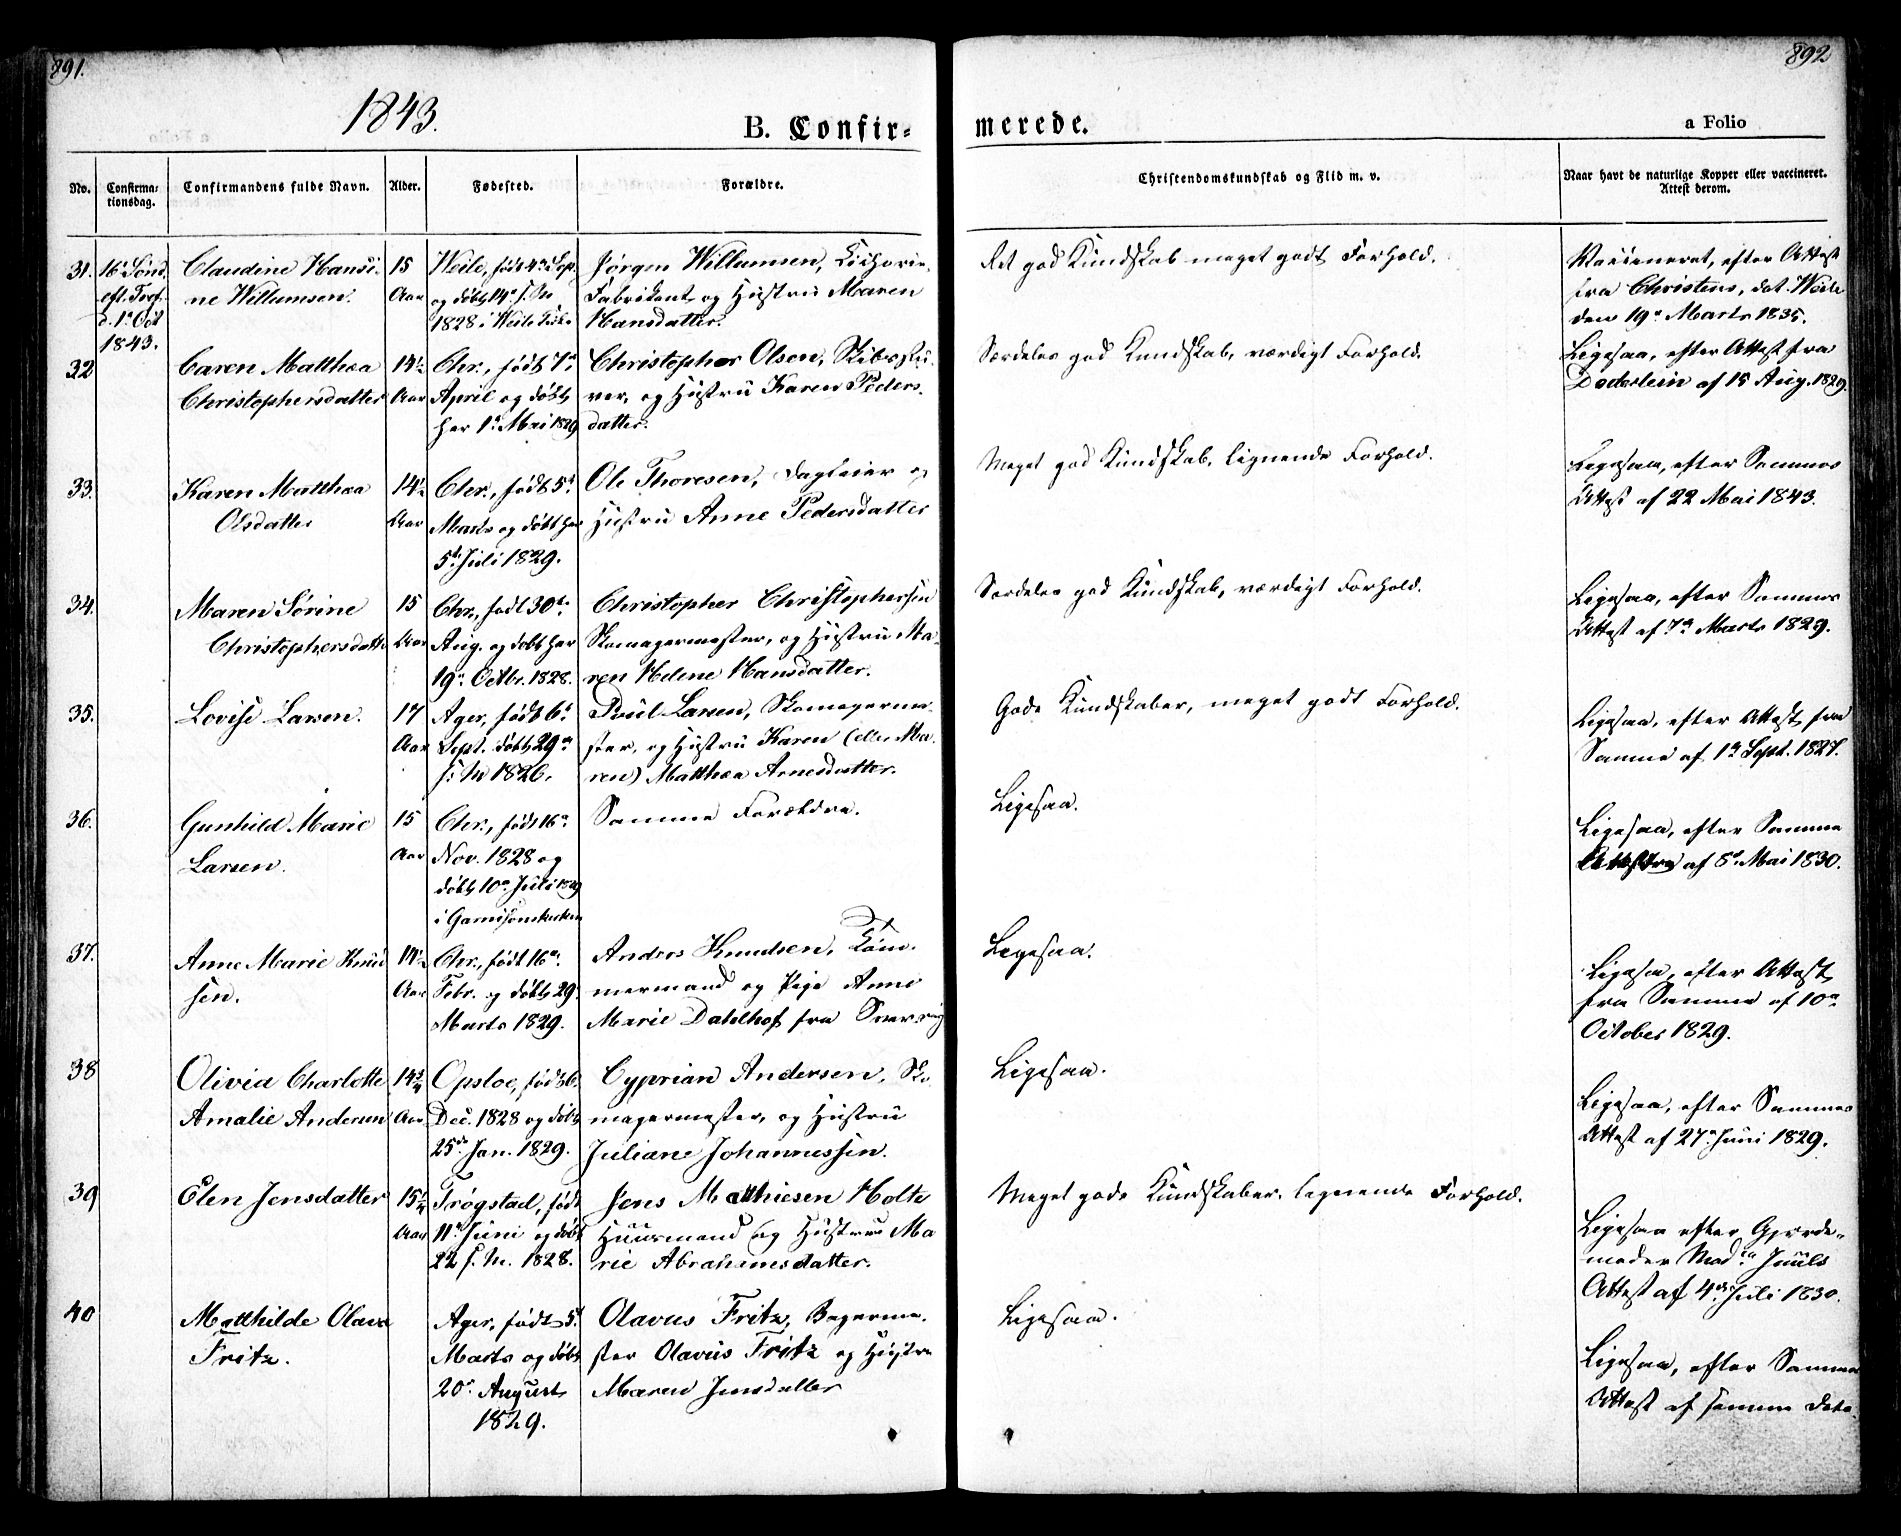 891.
892
1843.
B. Confir-
merede.
a Folio
No.
Confirma-
tionsdag.
Confirmandens fulde Navn.
Alder.
Fødested.
Forældre.
Christendomskundskab og Flid m. v.
Naar havt de naturlige Kopper eller vaccineret.
Attest derom.
31.
16 Sønd.
eft. Tref.
d. 1ste Oct
1843.
Claudine Hansi-
ne Willumsen.
15
Aar
Weile, født 4de Sept.
og døbt 14de s. M.
1828 i Weile
Jørgen Willumsen, Cichorie-
Fabrikant og Hustru Maren
Hansdatter.
Ret god Kundskab meget godt Forhold.
Vaccineret, efter Attest
fra Christens, dat. Weile
den 19de Marts 1835.
32
Caren Matthea
Christophersdatter
14½
Aar
Chr., født 7de
April og døbt
her 1ste Mai 1829
Christopher Olsen,
og Hustru Karen Peders-
datter.
Særdeles god Kundskab, værdigt Forhold.
Ligesaa, efter Attest fra
Døderlein af 15 Aug. 1829.
33.
Karen Matthea
Olsdatter
14½
Aar
Chr., født 5te
Marts og døbt her
5te Juli 1829.
Ole Thoresen, Dagleier og
Hustru Anne Pedersdatter
Meget god Kundskab, lignende Forhold.
Ligesaa, efter Sammes
Attest af 22 Mai 1843.
34.
Maren Sørine
Christophersdatter
15
Aar
Chr., født 30te
Aug. og døbt her
19de Octbr. 1828.
Christopher Christophersen
Skomagermester, og Hustru Ma-
ren Helene Hansdatter.
Særdeles god Kundskab, værdigt Forhold.
Ligesaa, efter Sammes
Attest af 7de Marts 1829.
35.
Lovise Larsen.
17
Aar
Ager, født 6te
Sept. døbt 29de
s. M. 1826.
Poul Larsen, Skomagerme-
ster, og Hustru Karen (eller Ma-
ren) Matthea Arnesdatter.
Gode Kundskaber, meget godt Forhold.
Ligesaa, efter Attest fra
Samme af 1ste Sept. 1827.
36.
Gunhild Marie
Larsen.
15
Aar
Chr., født 16de
Nov. 1828 og
døbt 10de Juli 1829
i Garnisonskirken
Samme Forældre.
Ligesaa.
Ligesaa, efter Samme
af 8de Mai 1830.
37.
Anne Marie Knud
sen.
14½
Aar
Chr., født 16de
Febr. og døbt 29.
Marts 1829.
Anders Knudsen, Tøm-
mermand og Pige Anne
Marie Dahlhof fra Sverrig
Ligesaa.
Ligesaa, efter Attest
fra Samme af 10de
October 1829.
38
Olivia Charlotte
Amalie Andersen
14¾
Aar
Opsloe, født 6.
Dec. 1828 og døbt
25de Jan. 1829.
Cyprian Andersen, Sko-
magermester, og Hustru
Juliane Johannessen.
Ligesaa.
Ligesaa, efter Sammes
Attest af 27de Juni 1829.
39
Elen Jensdatter
15¼
Aar
Trøgstad, født
11te Juni og døbt
22 s. M. 1828.
Jens Matthiesen Holte
Huusmand og Hustrue Ma
rie Abrahamsdatter.
Meget gode Kundskaber, lignende Forhold.
Ligesaa efter Gjorde-
moder Mad. Juuls
Attest af 4de Juli 1830.
40
Matthilde Olava
Fritz.
Ager, født 5te
Marts og døbt
20de August
1829.
Olavus Fritz, Bagerme-
ster Olavus Fritz og Hustru
Maren Jensdatter
Ligesaa.
Ligesaa, efter Samme
Attest af samme Dato.